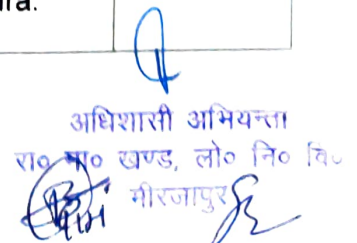 ara.
अधिशासी अभियन्ता
रा० मा० खण्ड, लो० नि० वि०
मीरजापुर